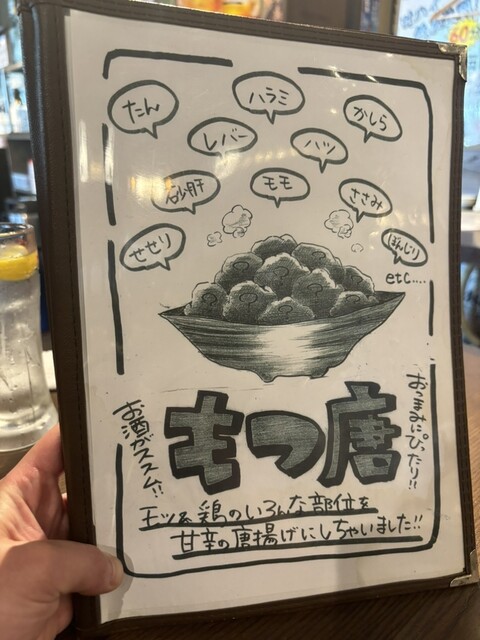 たん
ハラミ
かしら
レバー
ハツ
砂肝
モモ
ささみ
せせり
ぼんじり
etc....
もつ唐
お酒がススム!!
おつまみにぴったり!!
モツ&鶏のいろんな部位を
甘辛の唐揚げにしちゃいました!!
60